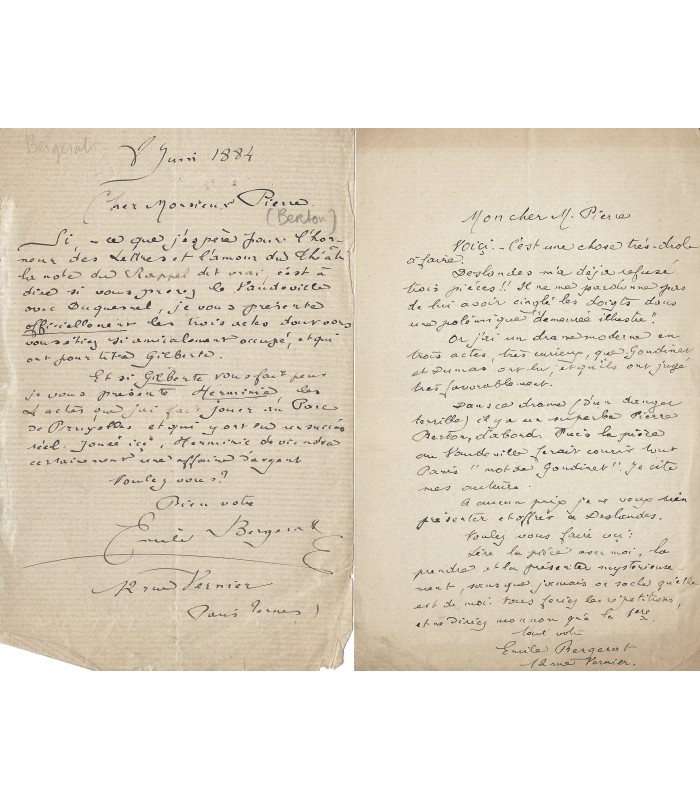 Bergerat
8 Juin 1884
Cher Monsieur Pierre
(Berton)
Si, - ce que j'espère pour l'hon-
neur des Lettres et l'amour du Théât
la note du Rappel dit vrai, c'est à
dire si vous prenez le Vaudeville
avec Duquesnel, je vous présente
officiellement les trois actes dont vous
vous étiez si amicalement occupé, et qui
ont pour titre Gilberte.
Et si Gilberte vous fait peur
je vous présente Herminie les
actes que j'ai fait jouer au Parc
de Bruxelles et qui y ont eu un succès
réel. Jouée ici, Herminie deviendra
certainement une affaire d'argent
Voulez vous?
Bien votre
Emile Bergerat
12 rue Vernier
Paris Ternes
Mon cher M. Pierre
Voiçi. - C'est une chose très-drole
à faire.
Deslandes m'a déja refusé
trois pièces!! Il ne me pardonne pas
de lui avoir cinglé les doigts dans
une polémique "demeurée illustre".
Or j'ai un drame moderne en
trois actes, très curieux, que Gondinet
et Dumas ont lu, et qu'ils ont jugé
très favorablement.
Dans ce drame (d'un danger
terrible) il y a un superbe Pierre
Berton, d'abord. Puis la pièce
au Vaudeville ferait courir tout
Paris "mot de Gondinet". Je cite
mes auteurs.
A aucun prix je ne veux rien
présenter et offrir à Deslandes.
Voulez vous faire ceci:
Lire la pièce avec moi, la
prendre et la présenter mystérieuse-
ment, sans que jamais on sache qu'elle
est de moi. Vous feriez les répétitions,
et ne diriez mon nom qu'à la 1ère.
tout votre
Emile Bergerat
12 rue Vernier.